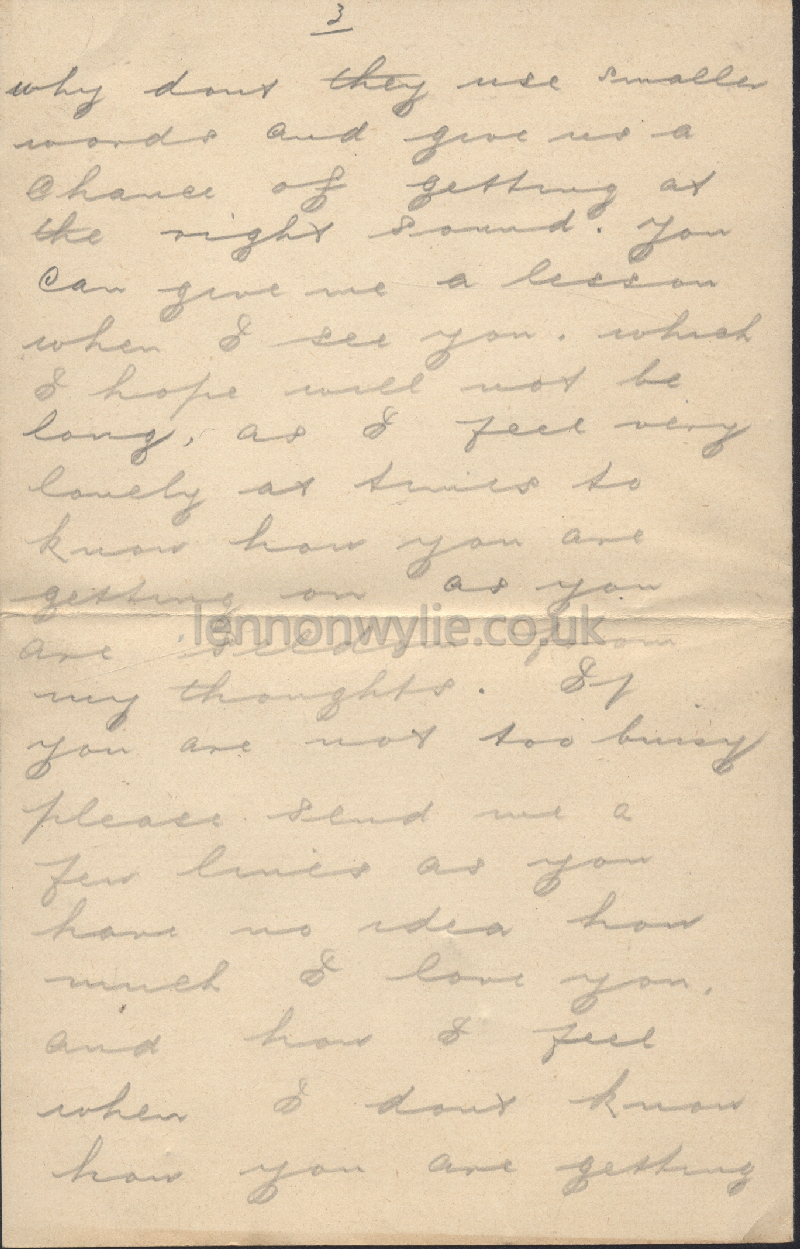 3
why dont they use smaller
words and give us a
Chance of getting at
the right sound. You
Can give me a lesson
when I see you. which
I hope will not be
long, as I feel very
lonely at times to
know how you are
getting on as you
lennonwylie.co.uk
are seldom from
my thoughts. If
you are not too busy
please send me a
few lines as you
have no idea how
much I love you,
and how I feel
when I dont know
how you are getting